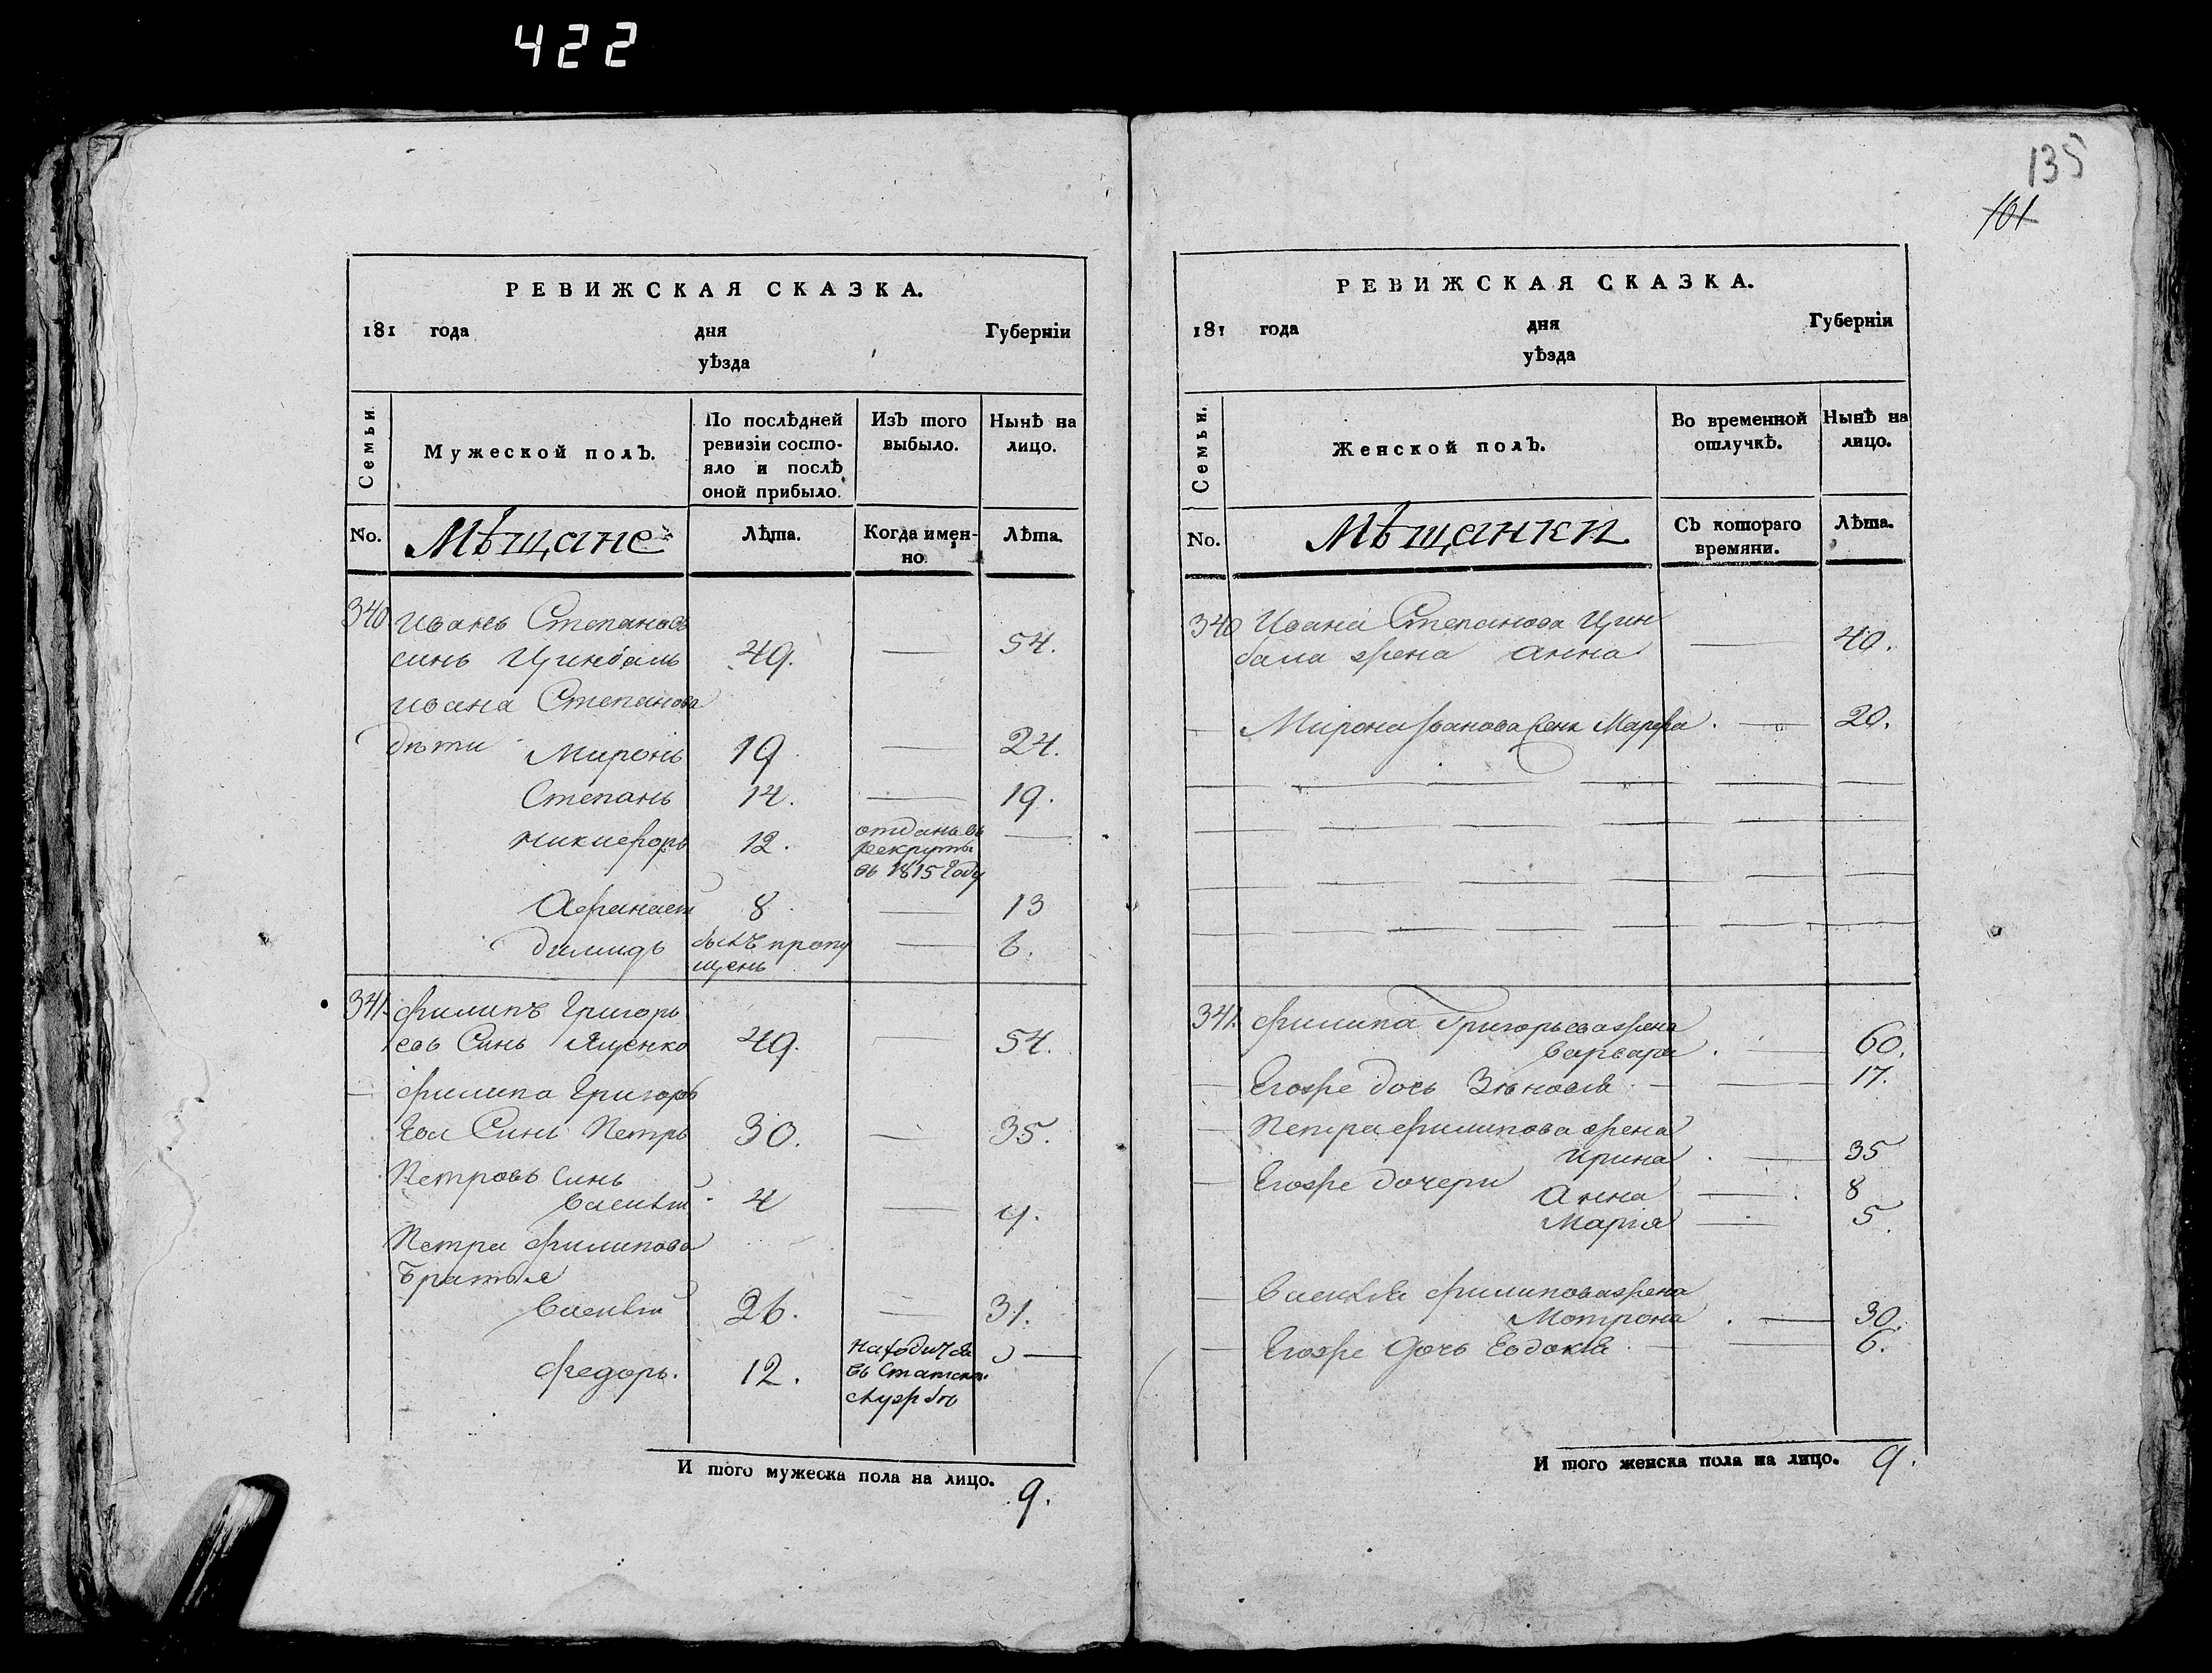 422
РЕВИЖСКАЯ СКАЗКА.
181 года дня Губерніи
уѣзда
Семьи.
Мужеской полъ.
По послѣдней ревизіи состо-
яло и послѣ оной прибыло.
Изъ того выбыло.
Нынѣ на лицо.
No. Мѣщане
Лѣта.
Когда имен-
но.
Лѣта.
340 Иванъ Степановъ
синъ Цинбалъ 49. — 54.
Ивана Степанова
дѣти Миронъ 19 — 24.
Степанъ 14. — 19.
Никифоръ 12. отданъ въ —
рекруты
въ 1815 году
Афанасій 8 — 13
Димидъ былъ пропу — 6.
щенъ
341. Филипъ Григорь
евъ Синъ Ященко 49. — 54.
— Филипа Григорь
ева Синъ Петръ 30. — 35.
Петровъ Синъ
Василій 4 — 4.
Петра Филипова
братья
Василій 26. — 31.
Федоръ. 12. находится —
въ Статской
службѣ
И того мужеска пола на лицо. 9.
135
101
РЕВИЖСКАЯ СКАЗКА.
181 года дня Губерніи
уѣзда
Семьи.
Женской полъ.
Во временной
отлучкѣ.
Нынѣ на
лицо.
No. Мѣщанки
Съ котораго
времяни.
Лѣта.
340 Ивана Степанова Цин
бала жена Анна — 40.
— Мирона Иванова жена Марфа. — 20.
341. Филипа Григорьева жена
Варвара. — 60.
— Егоже дочь Зѣновія — 17.
— Петра Филипова жена
Ирина. — 35
— Егоже дочери Анна — 8
Марія — 5.
— Василія Филипова жена
Мотрона. — 30.
— Егоже дочь Евдокія — 6.
И того женска пола на лицо. 9.